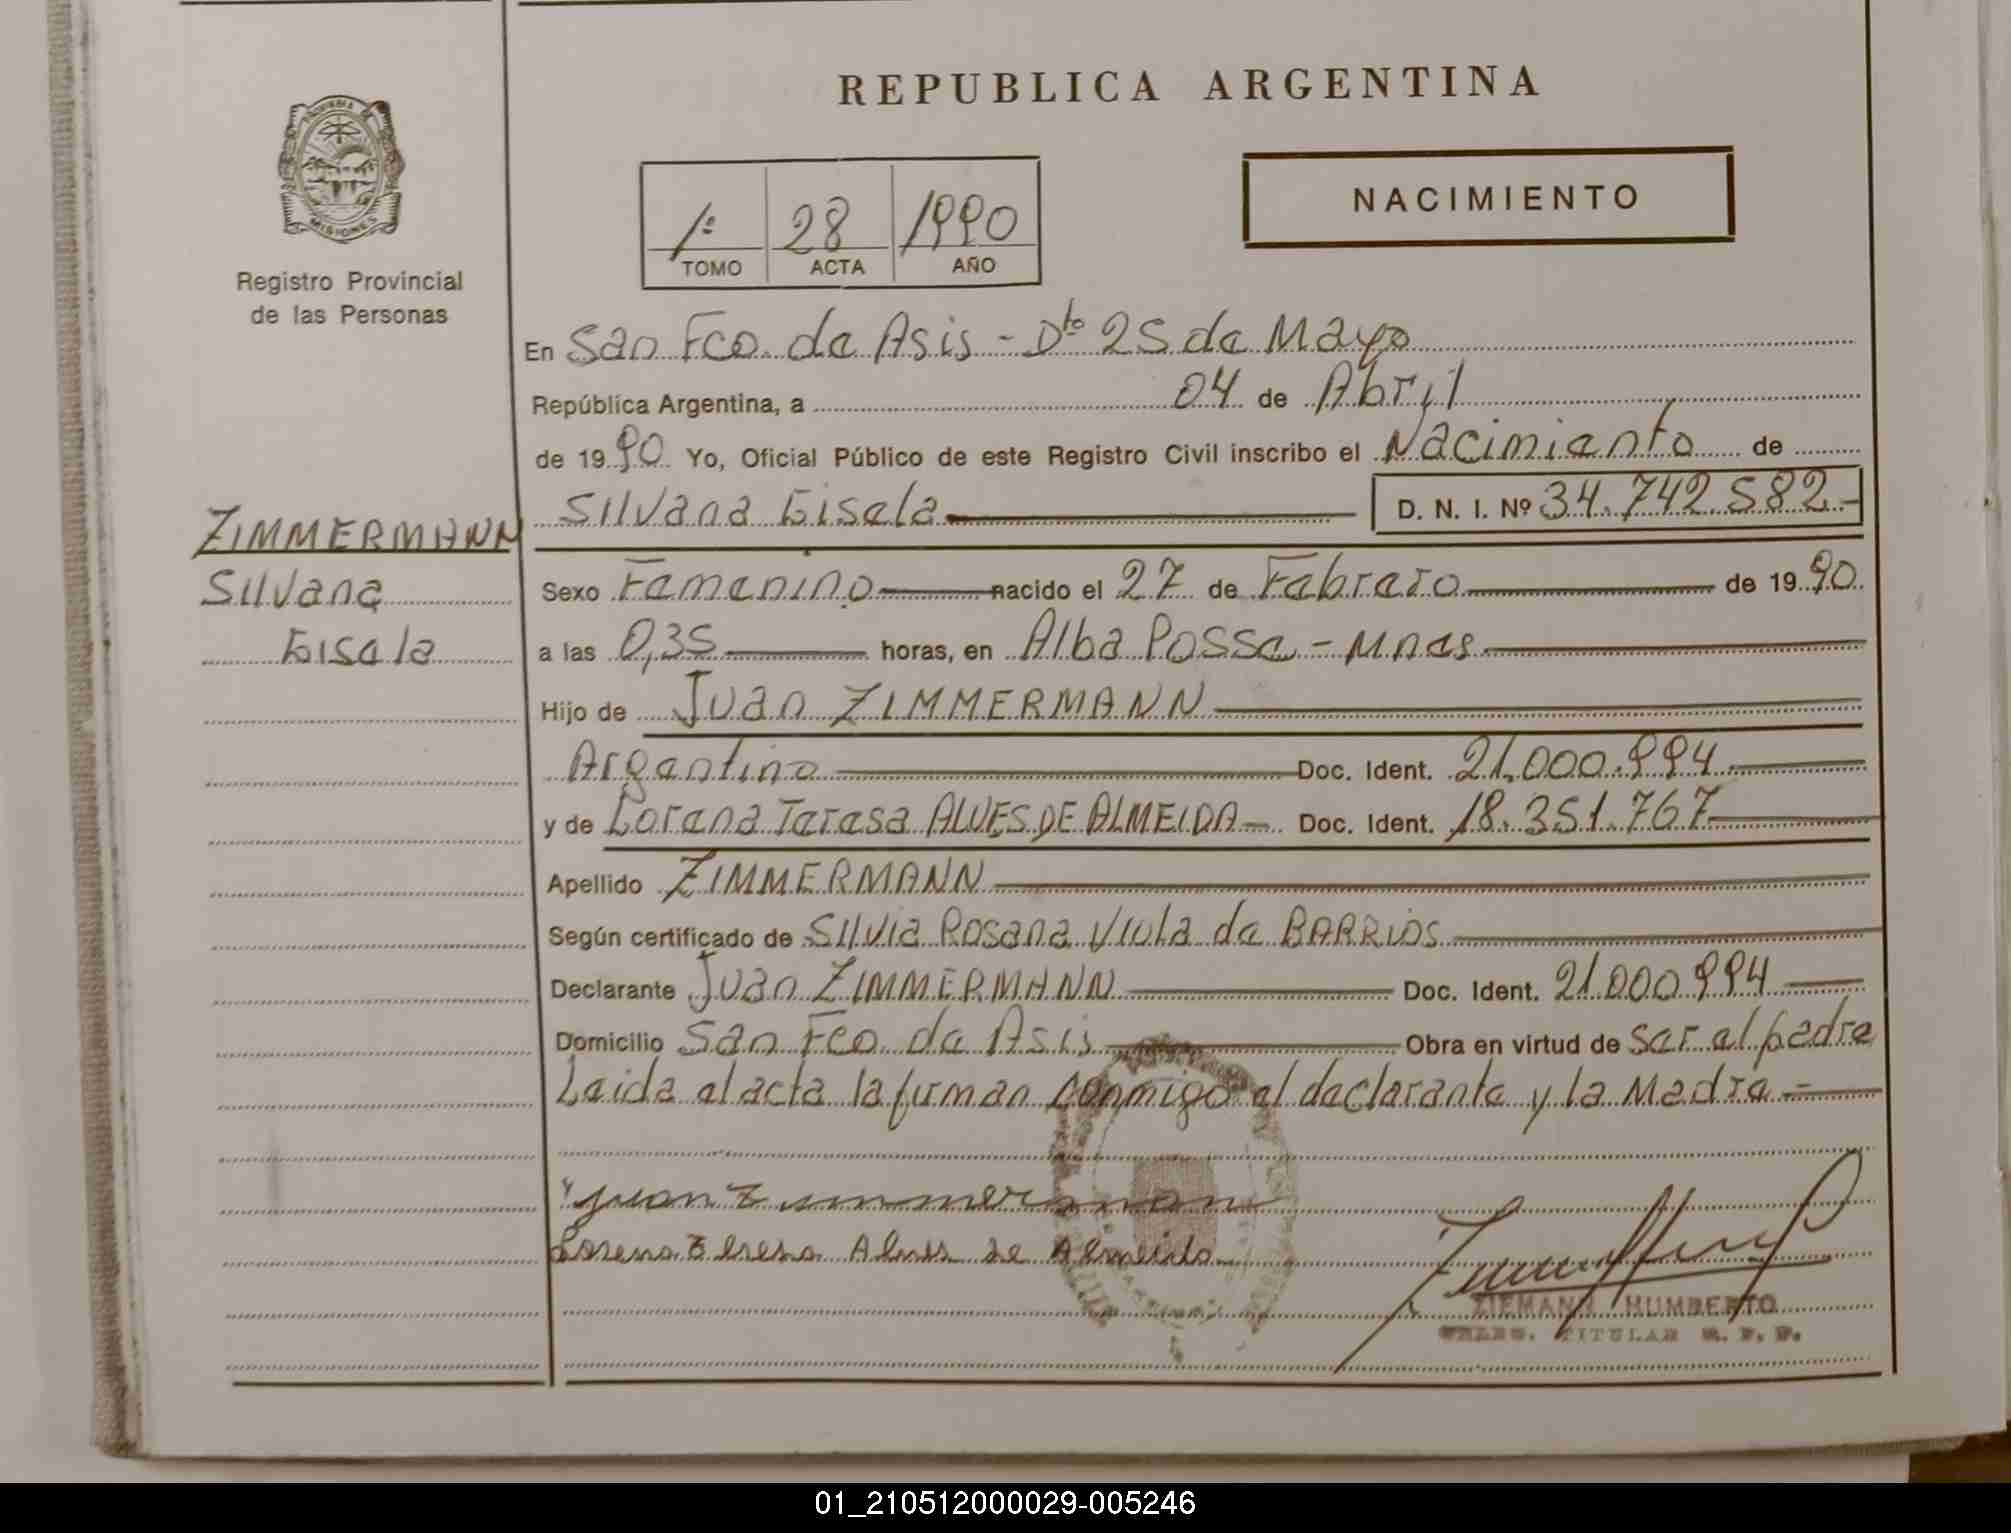 REPUBLICA ARGENTINA
PROVINCIA DE
MISIONES
Registro Provincial
de las Personas
1º 28 1990
TOMO ACTA AÑO
NACIMIENTO
En San Fco. de Asis - Dto 25 de Mayo
República Argentina, a 04 de Abril
de 1990 Yo, Oficial Público de este Registro Civil inscribo el Nacimiento de
Silvana Gisela D. N. I. Nº 34.742.582-
ZIMMERMANN
Silvana
Gisela
Sexo Femenino nacido el 27 de Febrero de 1990
a las 0,35 horas, en Alba Posse - Mnes
Hijo de Juan ZIMMERMANN
Argentino Doc. Ident. 21.000.994
y de Lorena Teresa ALVES DE ALMEIDA Doc. Ident. 18.351.767
Apellido ZIMMERMANN
Según certificado de Silvia Rosana Viola de BARRIOS
Declarante Juan ZIMMERMANN Doc. Ident. 21.000.994
Domicilio San Fco. de Asis Obra en virtud de ser el padre
Leida el acta la firman conmigo el declarante y la Madre -
Juan Zimmermann
Lorena Teresa Alves de Almeida
ZIEMANN HUMBERTO
TITULAR R. P. P.
01_210512000029-005246